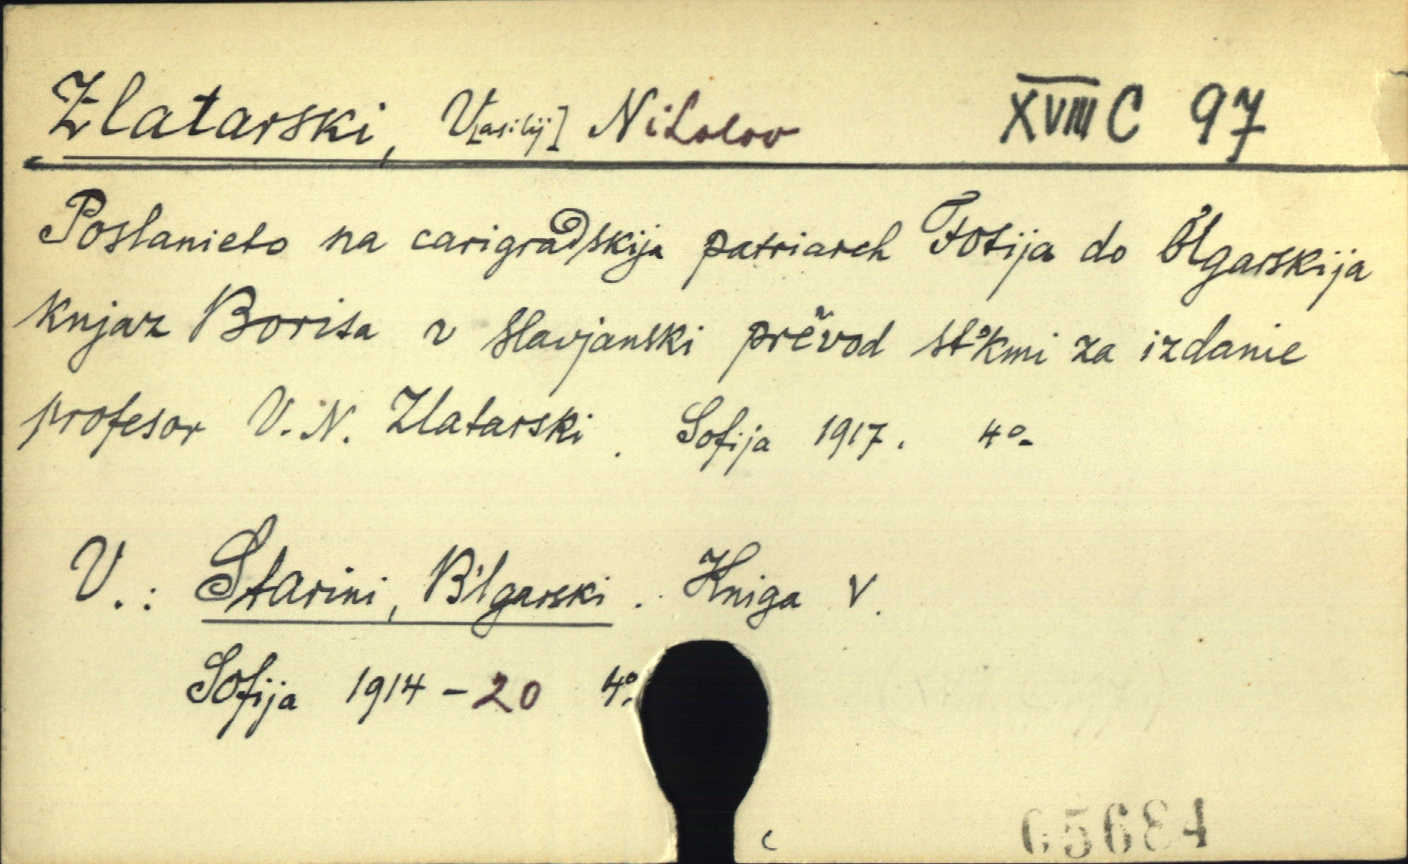 Zlatarski, V[asilij] Nikolov XVIII C 97
Poslanieto na carigradskija patriarch Fotija do b'lgarskija
knjaz Borisa v slavjanski prěvod st'kmi za izdanie
profesor V. N. Zlatarski. Sofija 1917. 4°.
V.: Starini, B'lgarski. Kniga V.
Sofija 1914-20 4°.
65684